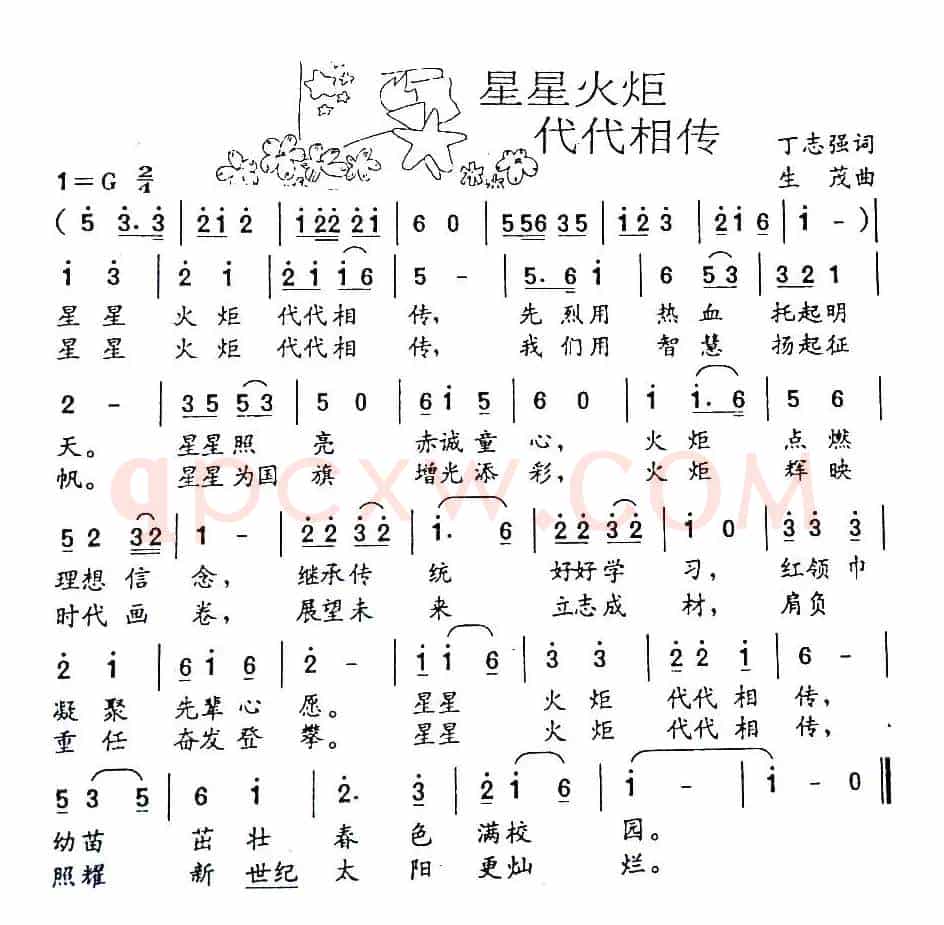 星星火炬
代代相传
丁志强词
1=G 2/4
生 茂曲
( 5 3. 3 | 2 1 2 | 1 2 2 2 1 | 6 0 | 5 5 6 3 5 | 1 2 3 | 2 1 6 | 1 - ) |
1 3 | 2 1 | 2 1 1 6 | 5 - | 5. 6 1 | 6 5 3 | 3 2 1 |
星 星 火 炬 代代相 传, 先 烈用 热 血 托起明
星 星 火 炬 代代相 传, 我 们用 智 慧 扬起征
2 - | 3 5 5 3 | 5 0 | 6 1 5 | 6 0 | 1 1. 6 | 5 6 |
天。 星星照 亮 赤诚童 心, 火 炬 点 燃
帆。 星星为国 旗 增光添 彩, 火 炬 辉 映
qpcxw.COM
5 2 3 2 | 1 - | 2 2 3 2 | 1. 6 | 2 2 3 2 | 1 0 | 3 3 3 |
理想 信 念, 继承传 统 好好学 习, 红领巾
时代 画 卷, 展望未 来 立志成 材, 肩负
2 1 | 6 1 6 | 2 - | 1 1 6 | 3 3 | 2 2 1 | 6 - |
凝 聚 先辈心 愿。 星星 火 炬 代代相 传,
重 任 奋发登 攀。 星星 火 炬 代代相 传,
5 3 5 | 6 1 | 2. 3 | 2 1 6 | 1 - | 1 - 0 ‖
幼苗 茁 壮 春 色 满校 园。
照耀 新 世纪 太 阳 更灿 烂。